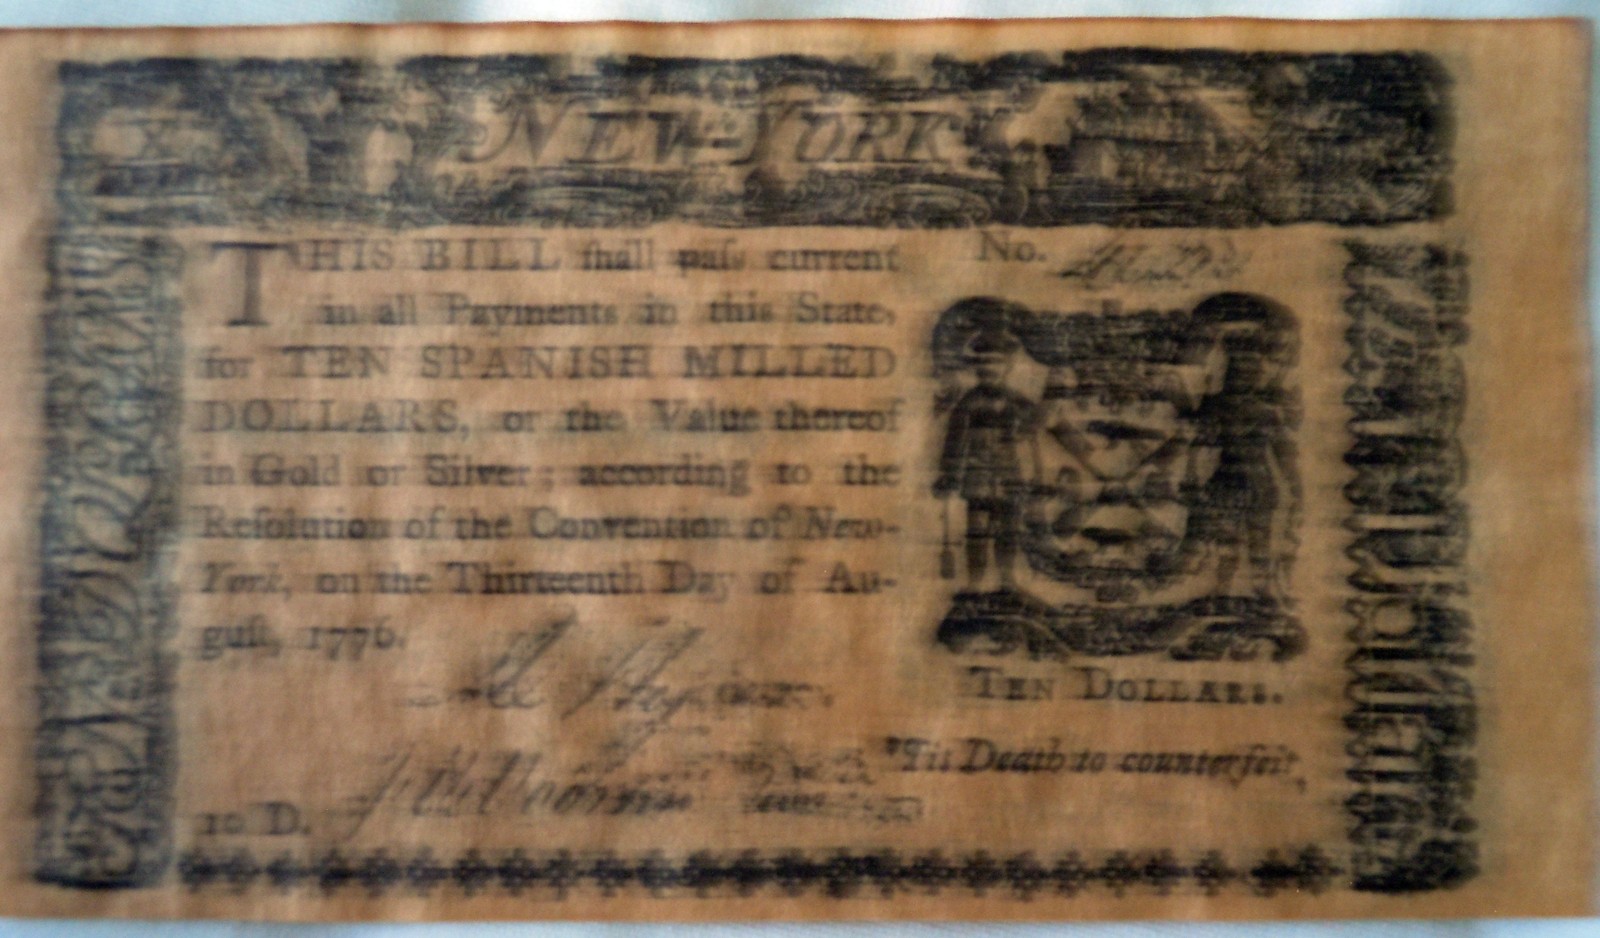 NEW-YORK
THIS BILL ſhall paſs current
in all Payments in this State,
for TEN SPANISH MILLED
DOLLARS, or the Value thereof
in Gold or Silver; according to the
Reſolution of the Convention of New-
York, on the Thirteenth Day of Au-
guſt, 1776.
No.
TEN DOLLARS.
'Tis Death to counterfeit,
10 D.